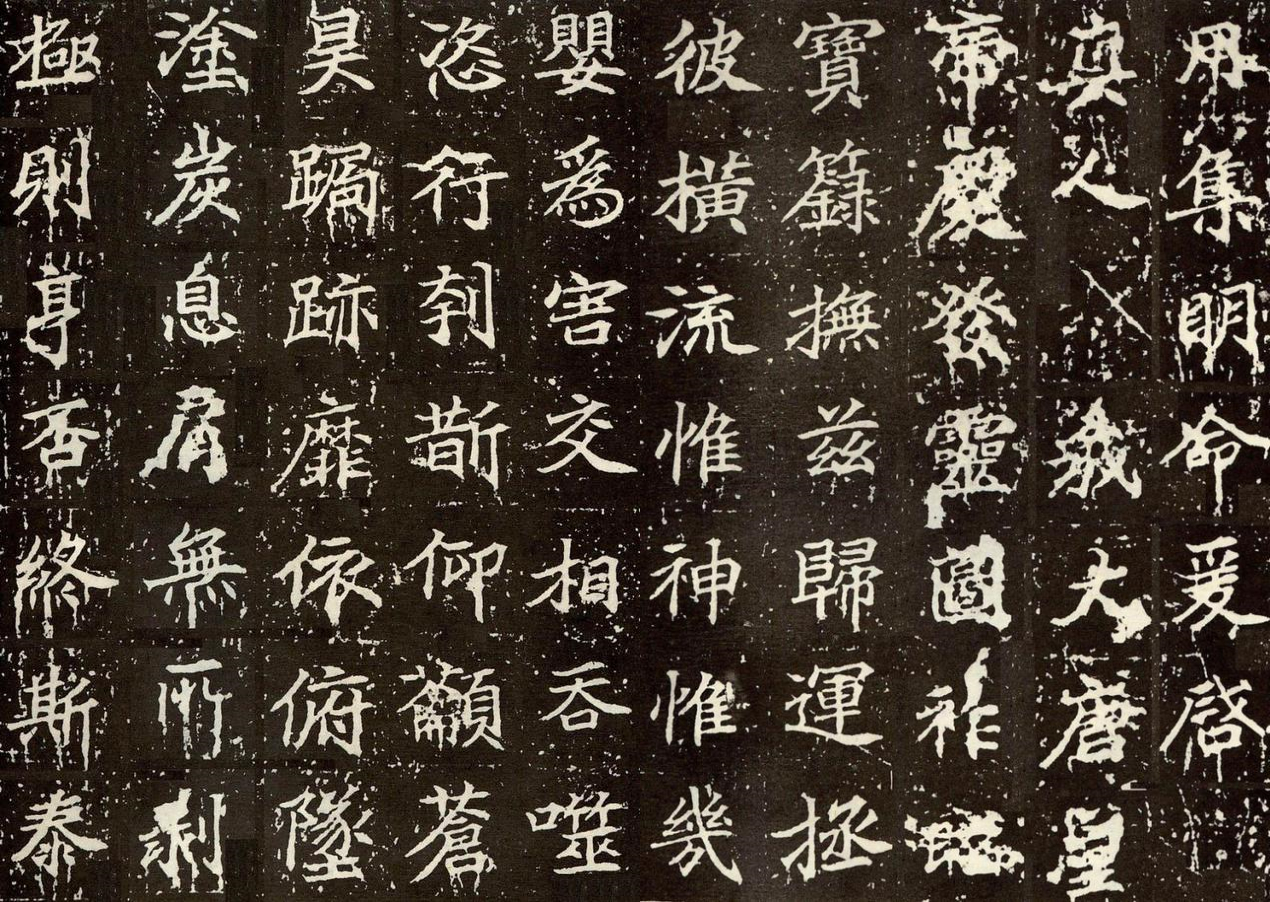 用集明命爰啓
真人我大唐皇
帝慶發靈圖祚
寶籙撫茲歸運拯
彼橫流惟神惟幾
嬰爲害交相吞噬
恣行刳斮仰籲蒼
昊跼跡靡依俯墜
塗炭息肩無所剝
極則亨否終斯泰